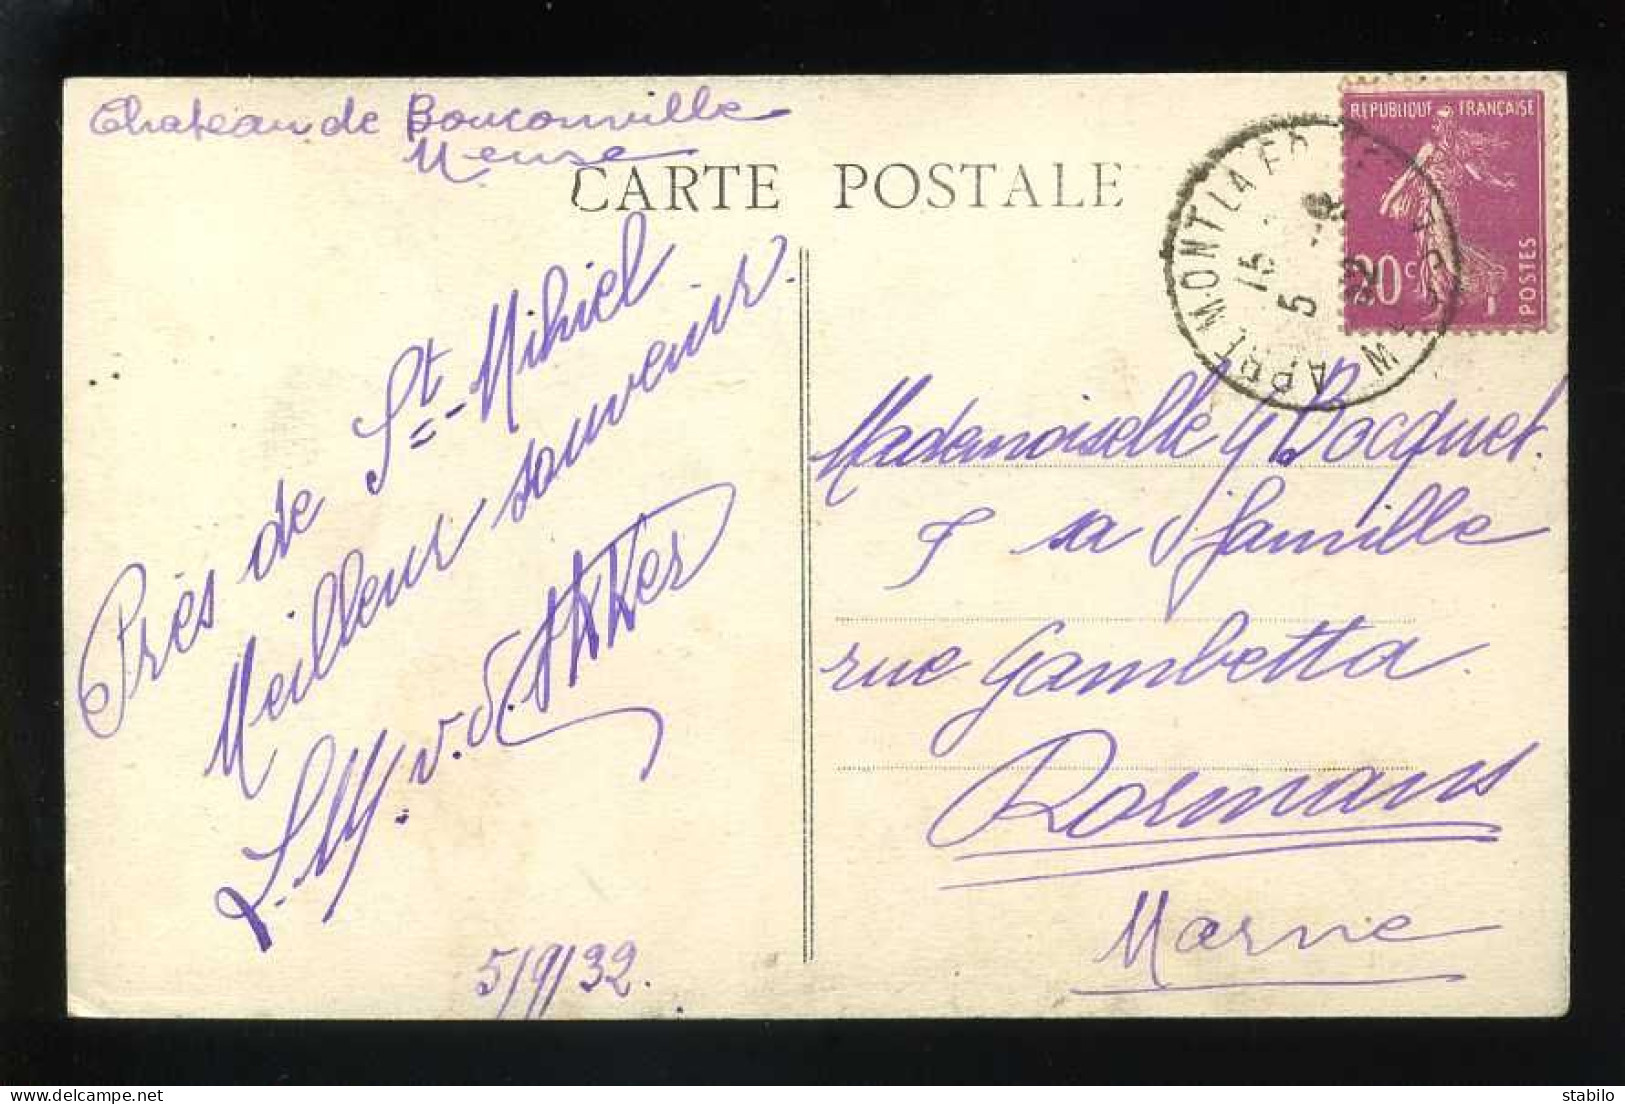 Chateau de Bouconville
Meuse
CARTE POSTALE
REPUBLIQUE FRANÇAISE
20c
POSTES
APREMONT LA FO
15
5 -9
32
Près de St-Mihiel
Meilleur souvenir.
5/9/32.
Mademoiselle G Bocquet.
& sa famille
rue Gambetta
Dormans
Marne
delcampe.net
stabilo